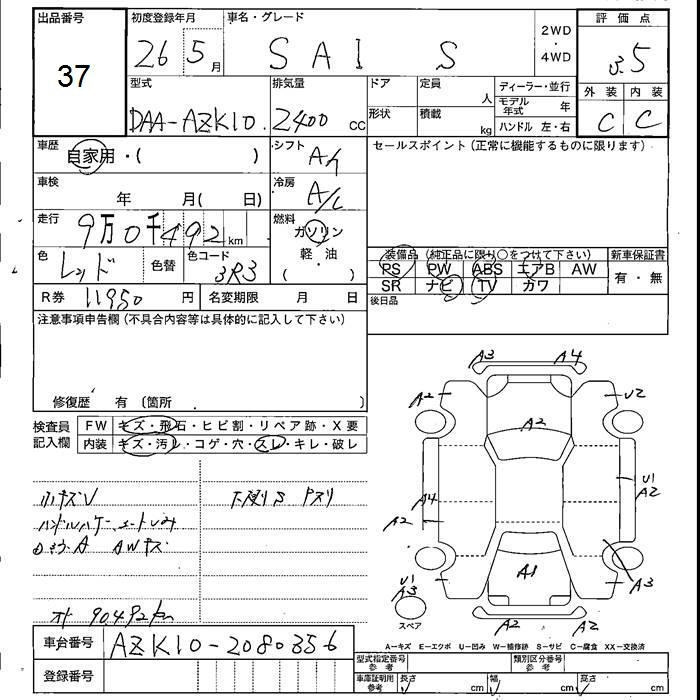 出品番号 初度登録年月 車名・グレード 2WD ・ 4WD 評価点
37 26 5月 SAI S 3.5
型式 排気量 ドア 定員 人 ディーラー・並行 外装 内装
DAA-AZK10 2400 cc 形状 積載 kg モデル年式 年 C C
ハンドル 左・右
車歴 自家用・( ) シフト AT セールスポイント(正常に機能するものに限ります)
車検 年 月( 日) 冷房 A/C
走行 9万0千492km 燃料 ガソリン 軽・油 ( )
色 レッド 色替 色コード 3R3
装備品(純正品に限り○をつけて下さい) 新車保証書
PS PW ABS エアB AW 有・無
SR ナビ TV カワ
R券 11950円 名変期限 月 日 後日品
注意事項申告欄(不具合内容等は具体的に記入して下さい)
修復歴 有(箇所 )
検査員記入欄 FW キズ・飛石・ヒビ割・リペア跡・X要
内装 キズ・汚レ・コゲ・穴・スレ・キレ・破レ
小キズV 下廻りS
AWキズ
90492km
A3 A4
A2 U2
A2
A4 U1 A2
A2
A1
U1 A3 A3
スペア A2 A2
A-キズ E-エクボ U-凹み W-補修跡 S-サビ C-腐食 XX-交換済
車台番号 AZK10-2080356
型式指定番号参考 類別区分番号参考
登録番号
車庫証明用参考 長さ cm 幅 cm 高さ cm